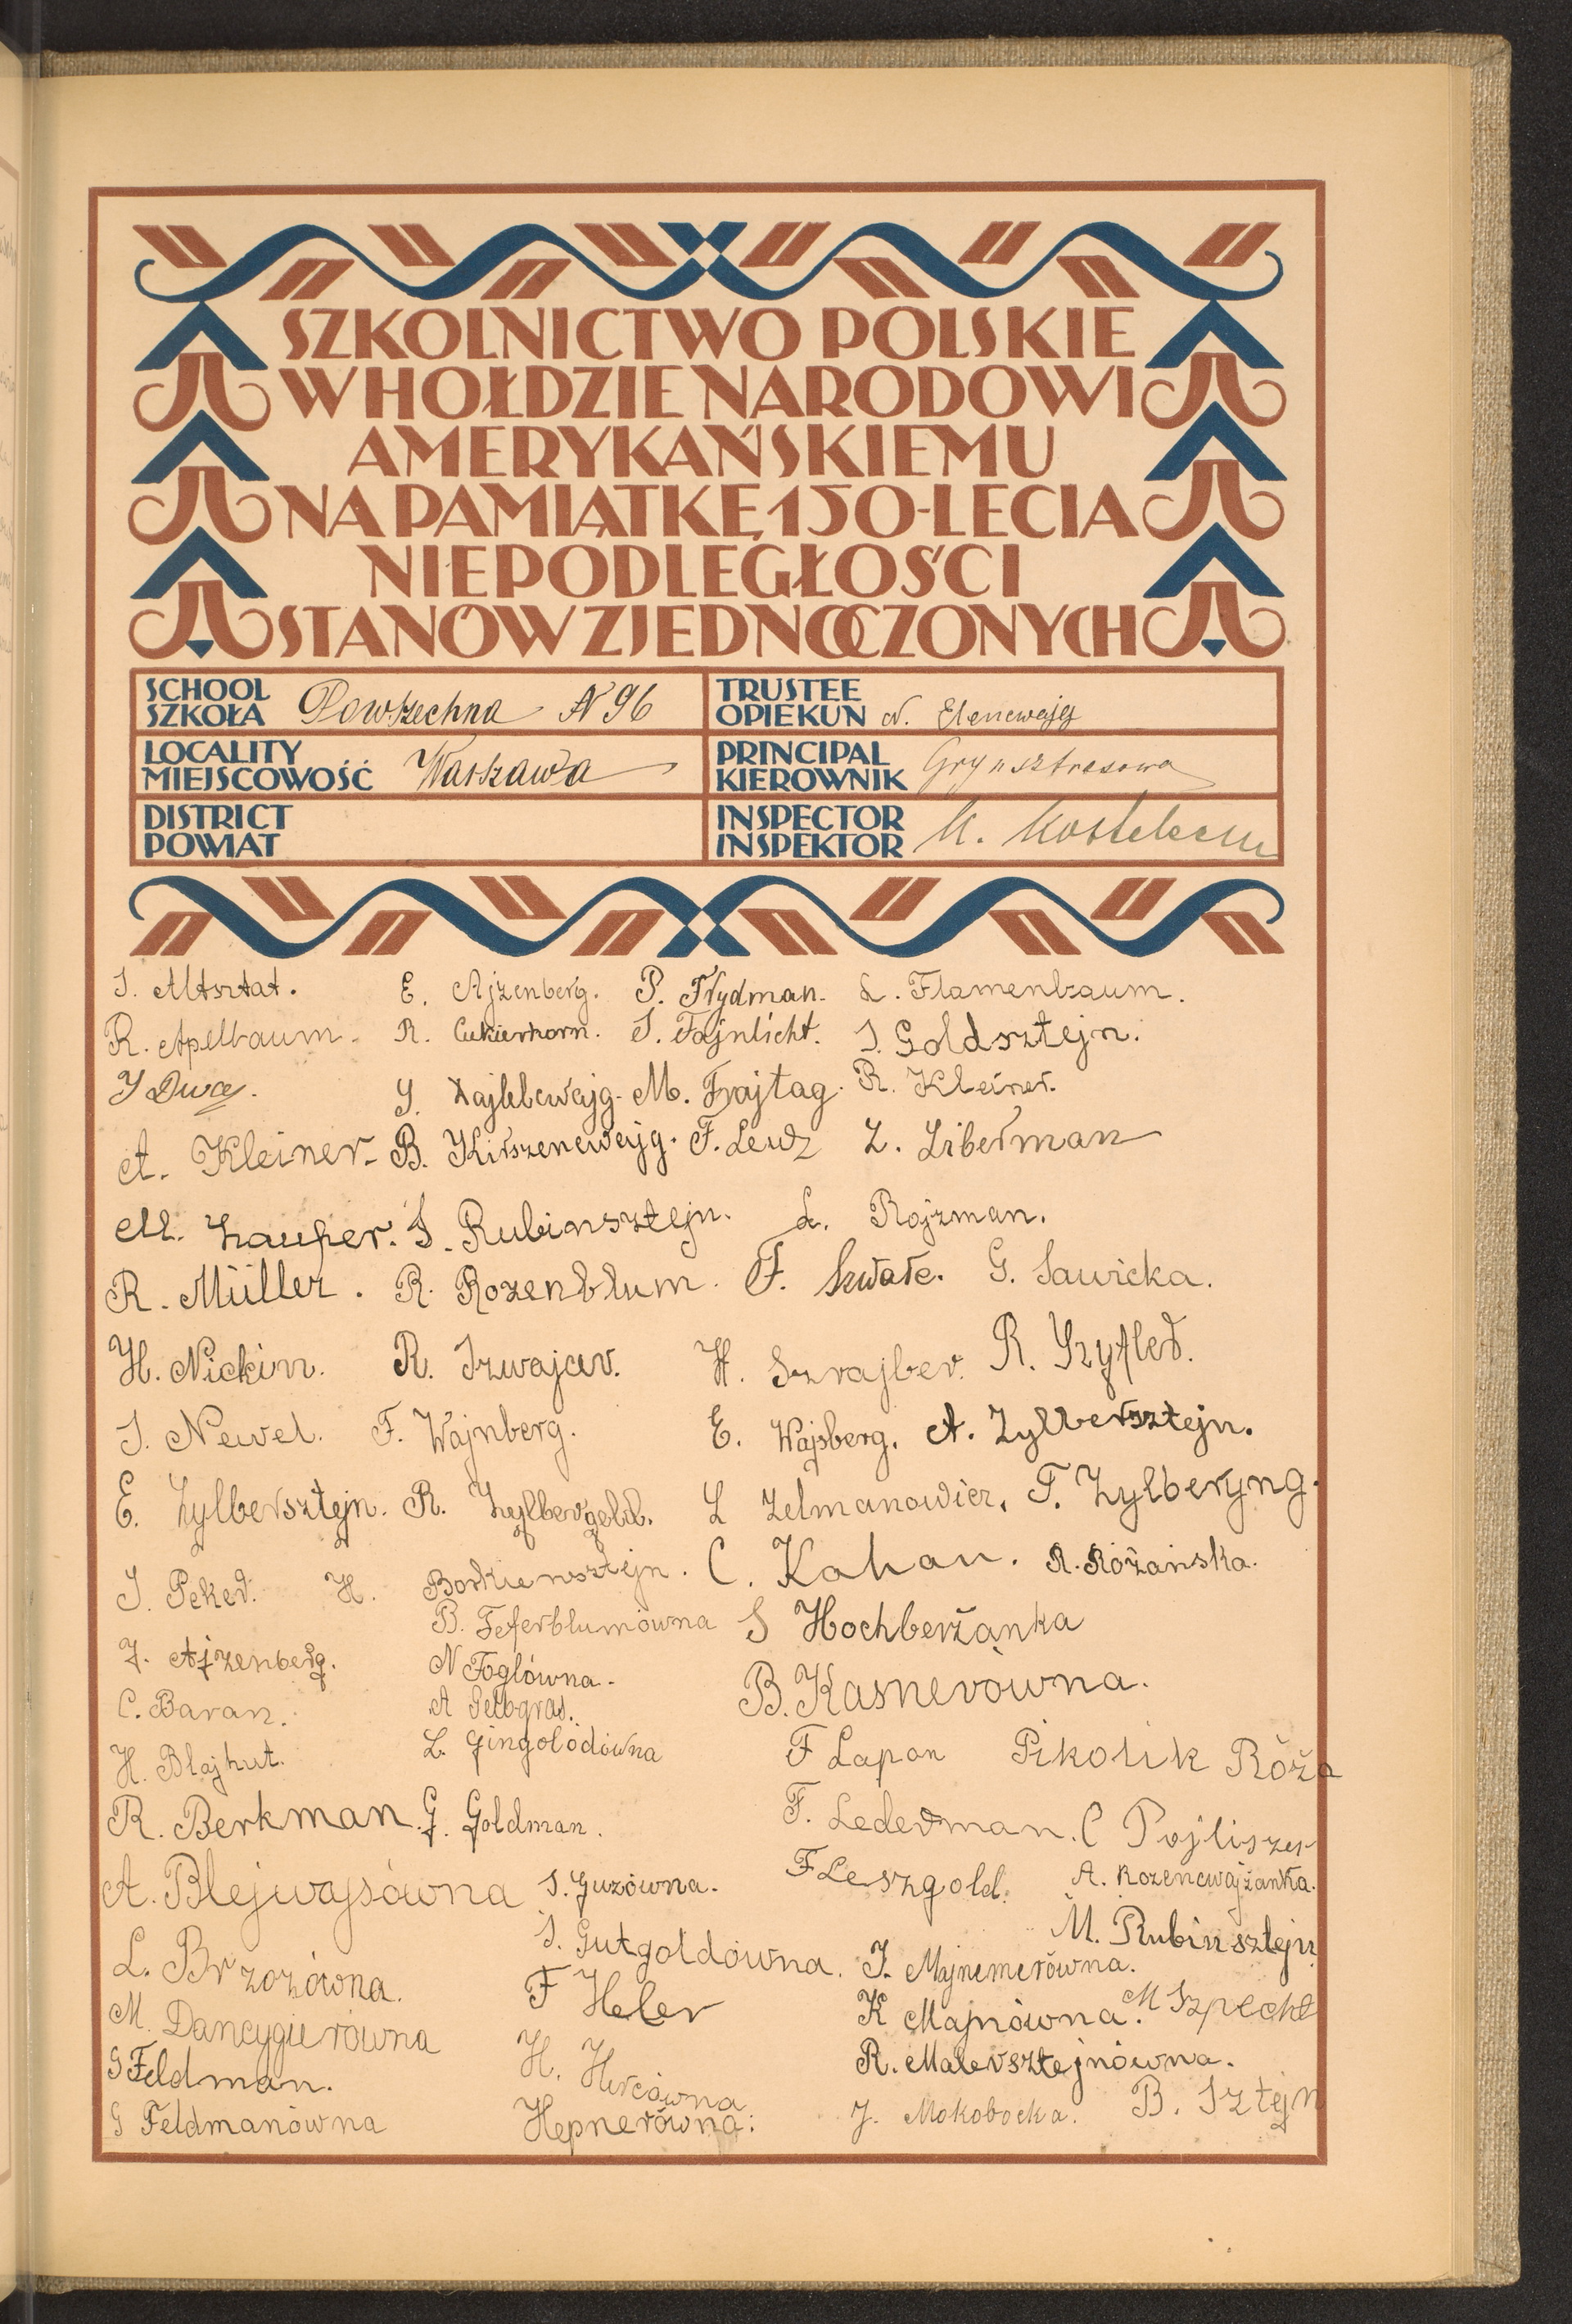 SZKOLNICTWO POLSKIE
W HOŁDZIE NARODOWI
AMERYKAŃSKIEMU
NA PAMIĄTKĘ 150-LECIA
NIEPODLEGŁOŚCI
STANÓW ZJEDNOCZONYCH
SCHOOL SZKOŁA Powszechna N 96 TRUSTEE OPIEKUN N.
LOCALITY MIEJSCOWOŚĆ Warszawa PRINCIPAL KIEROWNIK
DISTRICT POWIAT INSPECTOR INSPEKTOR K.
S. Altsztat. E. Ajzenberg. P. Frydman. L. Flamenbaum.
R. Apelbaum. R. Cukierkorn. S. Fajnlicht. S. Goldsztejn.
M. Frajtag. R. Kleiner.
A. Kleiner. B. Kirszencwajg. F. Lewz Z. Liberman
M. Laufer. S. Rubinsztejn. L. Rojzman.
R. Müller. R. Rozenblum. F. Szwarc. G. Sawicka.
H. Nickin. R. Szwajcer. H. Szrajber. R. Szyfled.
S. Newel. F. Wajnberg. E. Wajsberg. A. Zylbersztejn.
E. Zylbersztejn. R. Zylbergold. L Zelmanowicz. F. Zylberyng.
S. Peker. H. Borkiensztejn. C. Kahan. R. Różańska.
B. Feferblumówna S Hochberżanka
J. Ajzenberg. N Foglówna.
C. Baran. A Gelbgras. B. Kasnerówna.
H. Blajhut. L. Gingoldówna F Lapon Pikolik Róża
R. Berkman. G. Goldman. F. Lederman. C Pojliszer
A. Blejwajsówna S. Guzówna. F Leszgold. A. Rozencwajżanka.
L. Brzozówna. S. Gutgoldówna. J. Majnemerówna. M. Rubinsztejn
M. Dancygierówna F Heler K Majnówna. M Szpecht
G Feldman. H. Hercówna R. Malersztejnówna.
G Feldmanówna Hepnerówna: J. Mokobocka. B. Sztejn